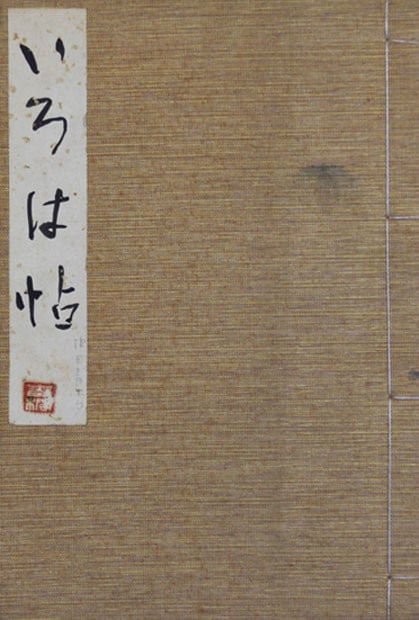 いろは帖